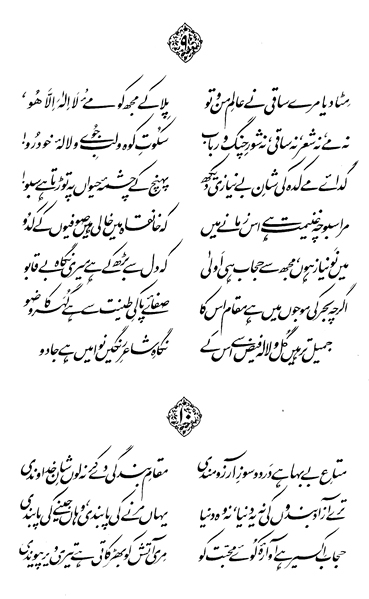 ۹
مٹا دیا مرے ساقی نے عالمِ من و تو
پلا کے مجھ کو مئے لَا اِلٰہَ اِلَّا ھُوْ!
نہ مے، نہ شعر، نہ ساقی، نہ شورِ چنگ و رباب
سکوتِ کوہ و لبِ جوے و لالۂ خودرو!
گدائے مےکدہ کی شانِ بے نیازی دیکھ
پہنچ کے چشمۂ حیواں پہ توڑتا ہے سبو!
مرا سبوچہ غنیمت ہے اس زمانے میں
کہ خانقاہ میں خالی ہیں صوفیوں کے کدو
میں نو نیاز ہوں، مجھ سے حجاب ہی اَولیٰ
کہ دل سے بڑھ کے ہے میری نگاہ بے قابو
اگرچہ بحر کی موجوں میں ہے مقام اس کا
صفائے پاکیِ طینت سے ہے گہر کا وضو
جمیل تر ہیں گل و لالہ فیض سے اس کے
نگاہِ شاعرِ رنگیں نوا میں ہے جادو
۱۰
متاعِ بے بہا ہے درد و سوزِ آرزومندی
مقامِ بندگی دے کر نہ لوں شانِ خداوندی
ترے آزاد بندوں کی نہ یہ دنیا، نہ وہ دنیا
یہاں مرنے کی پابندی، وہاں جینے کی پابندی
حجاب اِکسیر ہے آوارۂ کوئے محبت کو
مری آتش کو بھڑکاتی ہے تیری دیر پیوندی